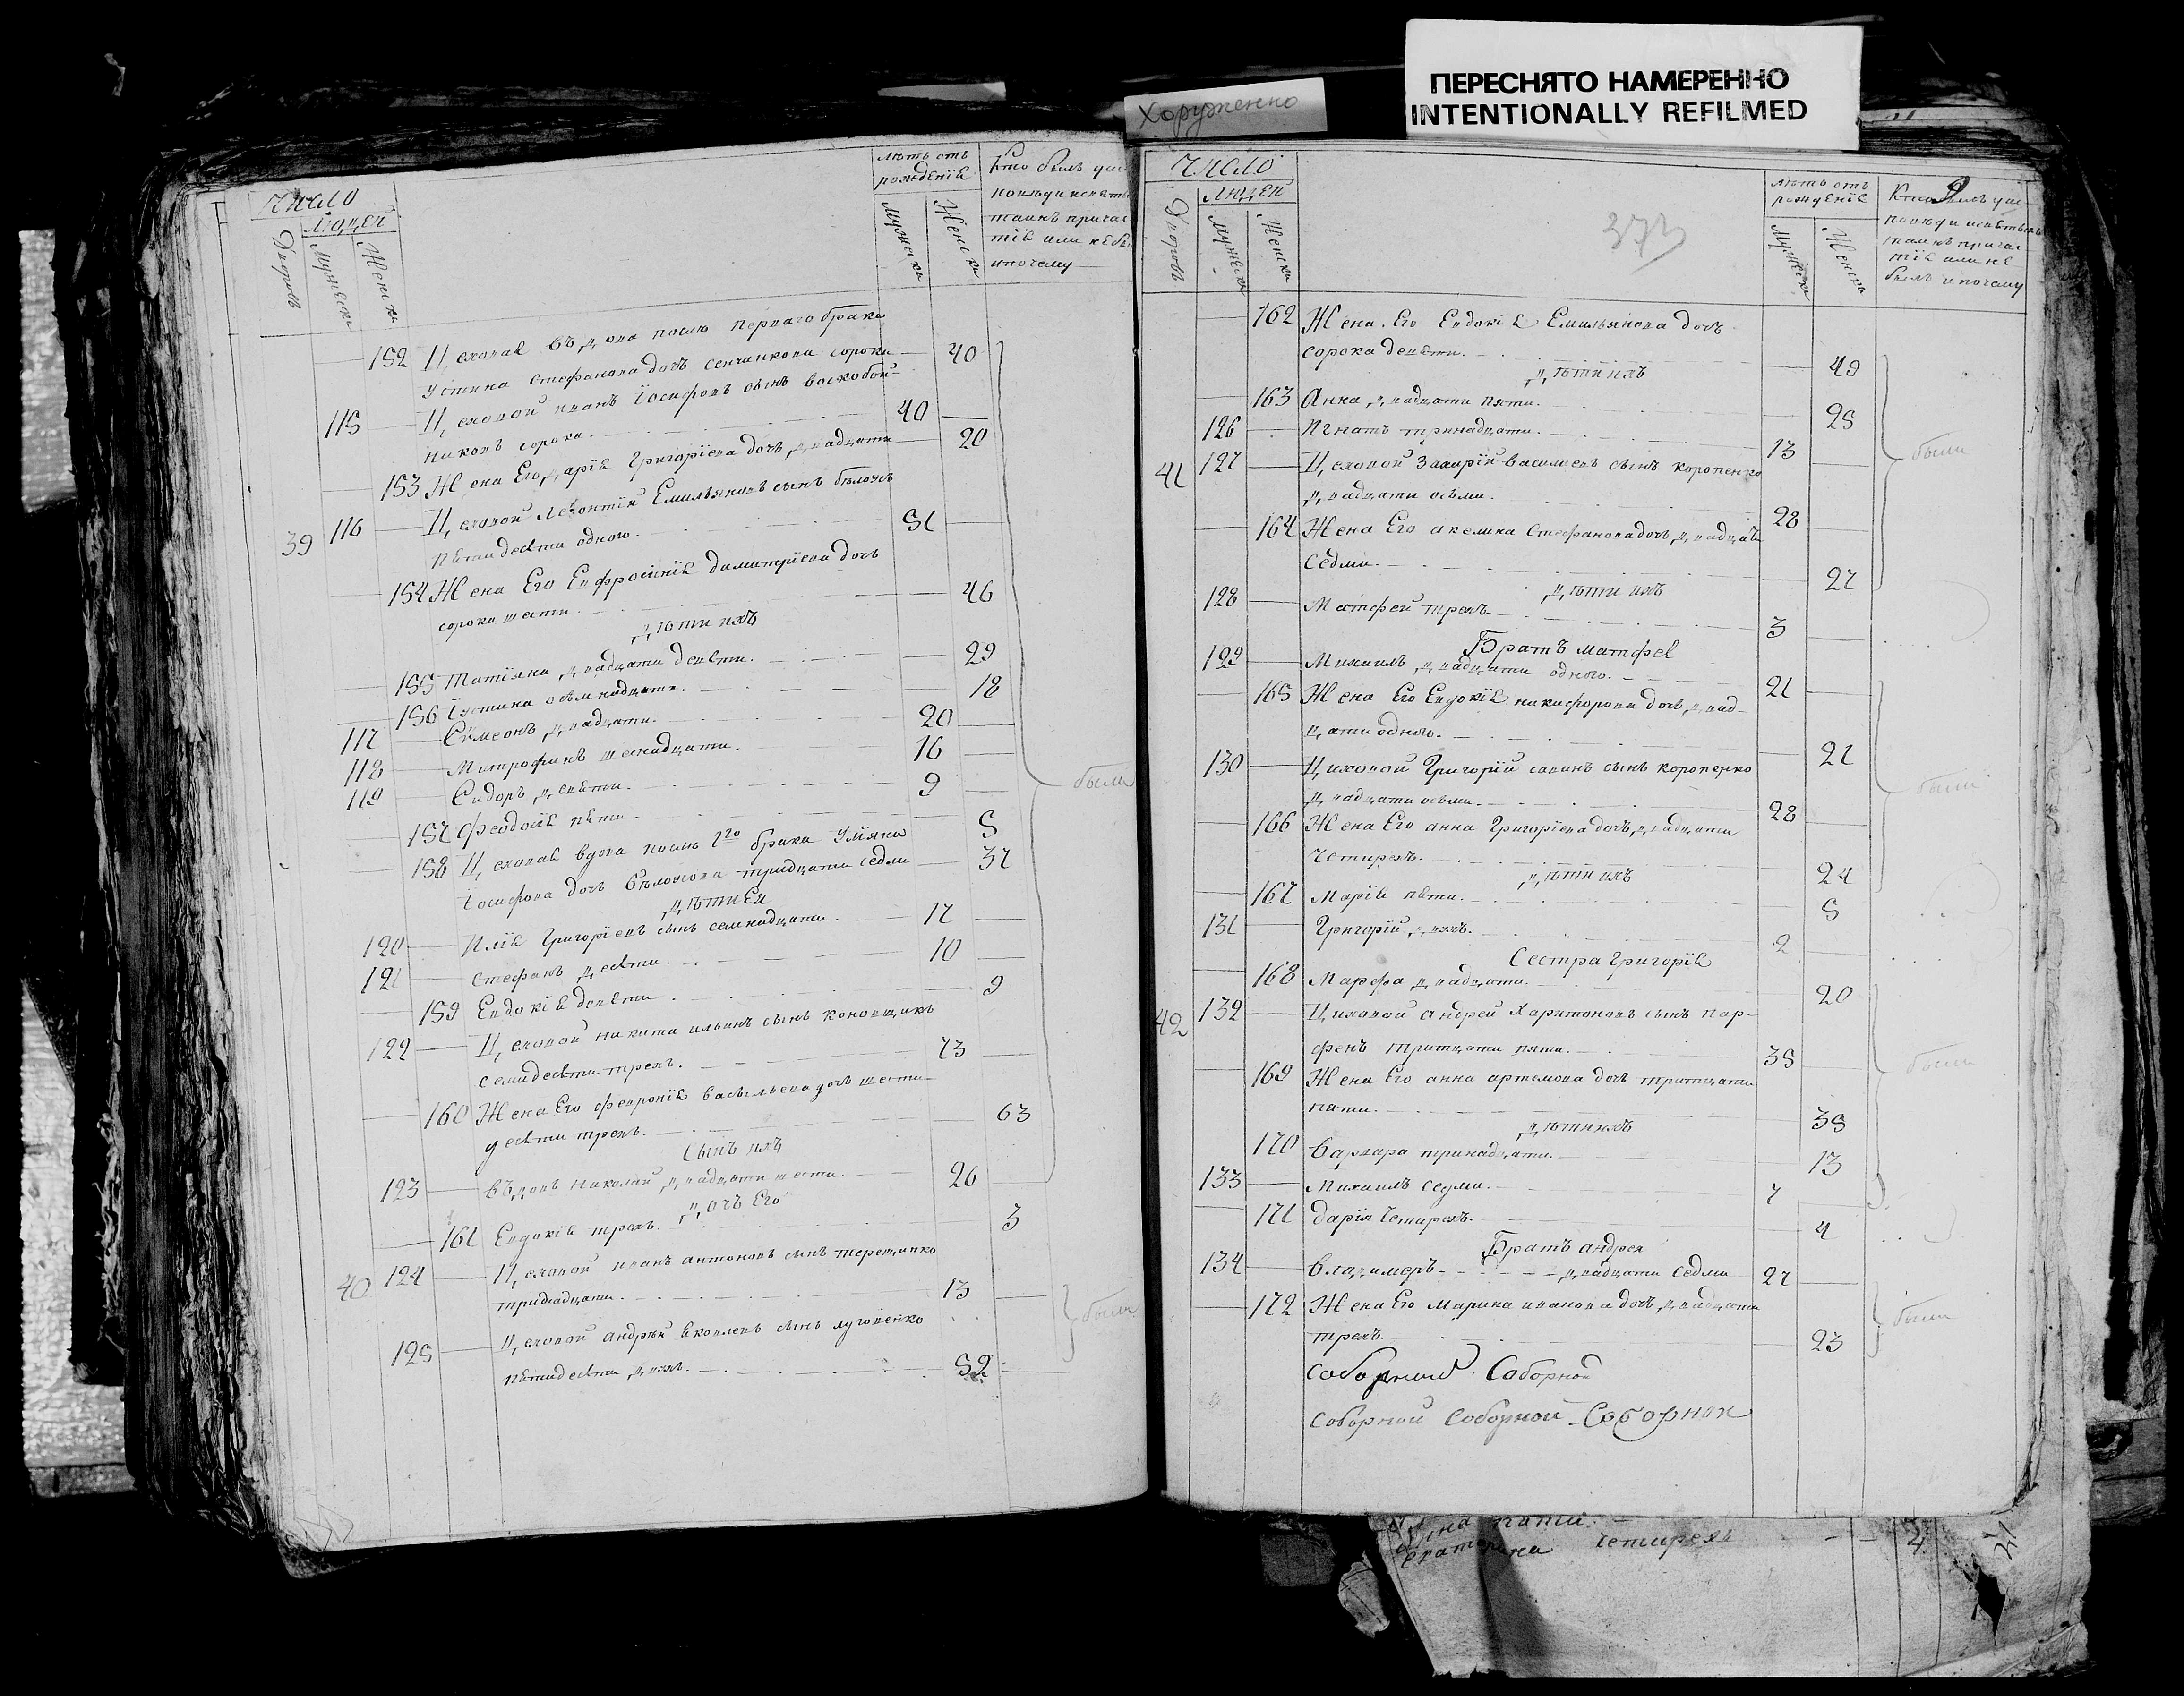 ПЕРЕСНЯТО НАМЕРЕННО
INTENTIONALLY REFILMED
Хоруженко
число
людей
Дворовъ
Мужеска
Женска
лѣтъ отъ
рожденїѧ
Мужеска
Женска
Кто былъ у ис
повѣди и свѧт
таинъ причас
тїѧ или не бы
и почему
152 Цеховаѧ въдова посли перваго брака
Устина Стефанова дочь Сенчанкова сорока 40
115 Цеховой иванъ їосифовъ сынъ воскобой
никовъ сорока. 40
153 Жена Его дарїѧ Григорїева дочь двадцати 20
39 116 Цеховой Леѡнтїй Емильяновъ сынъ бѣлоусъ
пѧтидесѧти одного. 51
154 Жена Его Евфросинїѧ димитрїева дочь
сорока шести. 46
Дѣти ихъ
155 Татїяна двадцати девѧти. 29
156 їустина осѣмнадцати. 18
117 Сѵмеонъ двадцати. 20
118 Митрофанъ шеснадцати. 16
119 Сидоръ девѧти. 9
157 Феодосїѧ пѧти. 5
158 Цеховаѧ вдова посли 1го брака Улїяна
їосифова дочь бѣлоусова тридцати седми 37
Дѣти Еѧ
120 Илїѧ Григорїевъ сынъ семнадцати. 17
121 Стефанъ десѧти. 10
159 Евдокїѧ девѧти. 9
122 Цеховой никита ильинъ сынъ коновщикъ
семидесѧти трехъ. 73
160 Жена Его февронїѧ васильева дочь шести
десѧти трехъ. 63
Сынъ ихъ
123 въдовъ николай двадцати шести. 26
Дочь Его
161 Евдокїѧ трехъ. 3
40 124 Цеховой иванъ антоновъ сынъ терещинко
тринадцати. 13
125 Цеховой Андрѣй Ѧковлевъ сынъ луговенко
пѧтидесѧти двохъ. 52
были
были
число
людей
Дворовъ
мужеска
Женска
373
лѣтъ отъ
рожденїѧ
Мужеска
Женска
9
Кто былъ у ис
повѣди и свѧтыхъ
таинъ причас
тїѧ или не
былъ и почему
162 Жена Его Евдокїѧ Емильянова дочь
сорока девѧти. 49
Дѣти ихъ
163 Анна двадцати пяти. 25
126 Игнатъ тринадцати. 13
41 127 Цеховой Захарїй васильевъ сынъ коропенко
двадцати осьми. 28
164 Жена Его акелина Стефанова дочь двадцать
седми. 27
Дѣти ихъ
128 Матфей трехъ. 3
Братъ матфеѧ
129 Михаилъ двадцати одного. 21
165 Жена Его Евдокїѧ никифорова дочь двад
цати одного. 21
130 Циховой Григорїй савинъ сынъ коропенко
двадцати осьми. 28
166 Жена Его анна Григорїева дочь двадцати
четирехъ. 24
Дѣти ихъ
167 Марїѧ пѧти. 5
131 Григорїй двохъ. 2
Сестра Григорїѧ
168 Марфа двадцати. 20
42 132 Циховой андрей Харитоновъ сынъ пар
фенъ тритцати пяти. 35
169 Жена Его анна артемова дочь тритцати
пяти. 35
Дѣти ихъ
170 варвара тринадцати. 13
133 Михаилъ седми. 7
171 дарїя четирехъ. 4
Братъ андрея
134 владимеръ двадцати седми 27
172 Жена Его Марина иванова дочь двадцати
трехъ. 23
были
были
были
были
Соборной
Соборной Соборной Соборная
пяти.
екатерина четирехъ 4